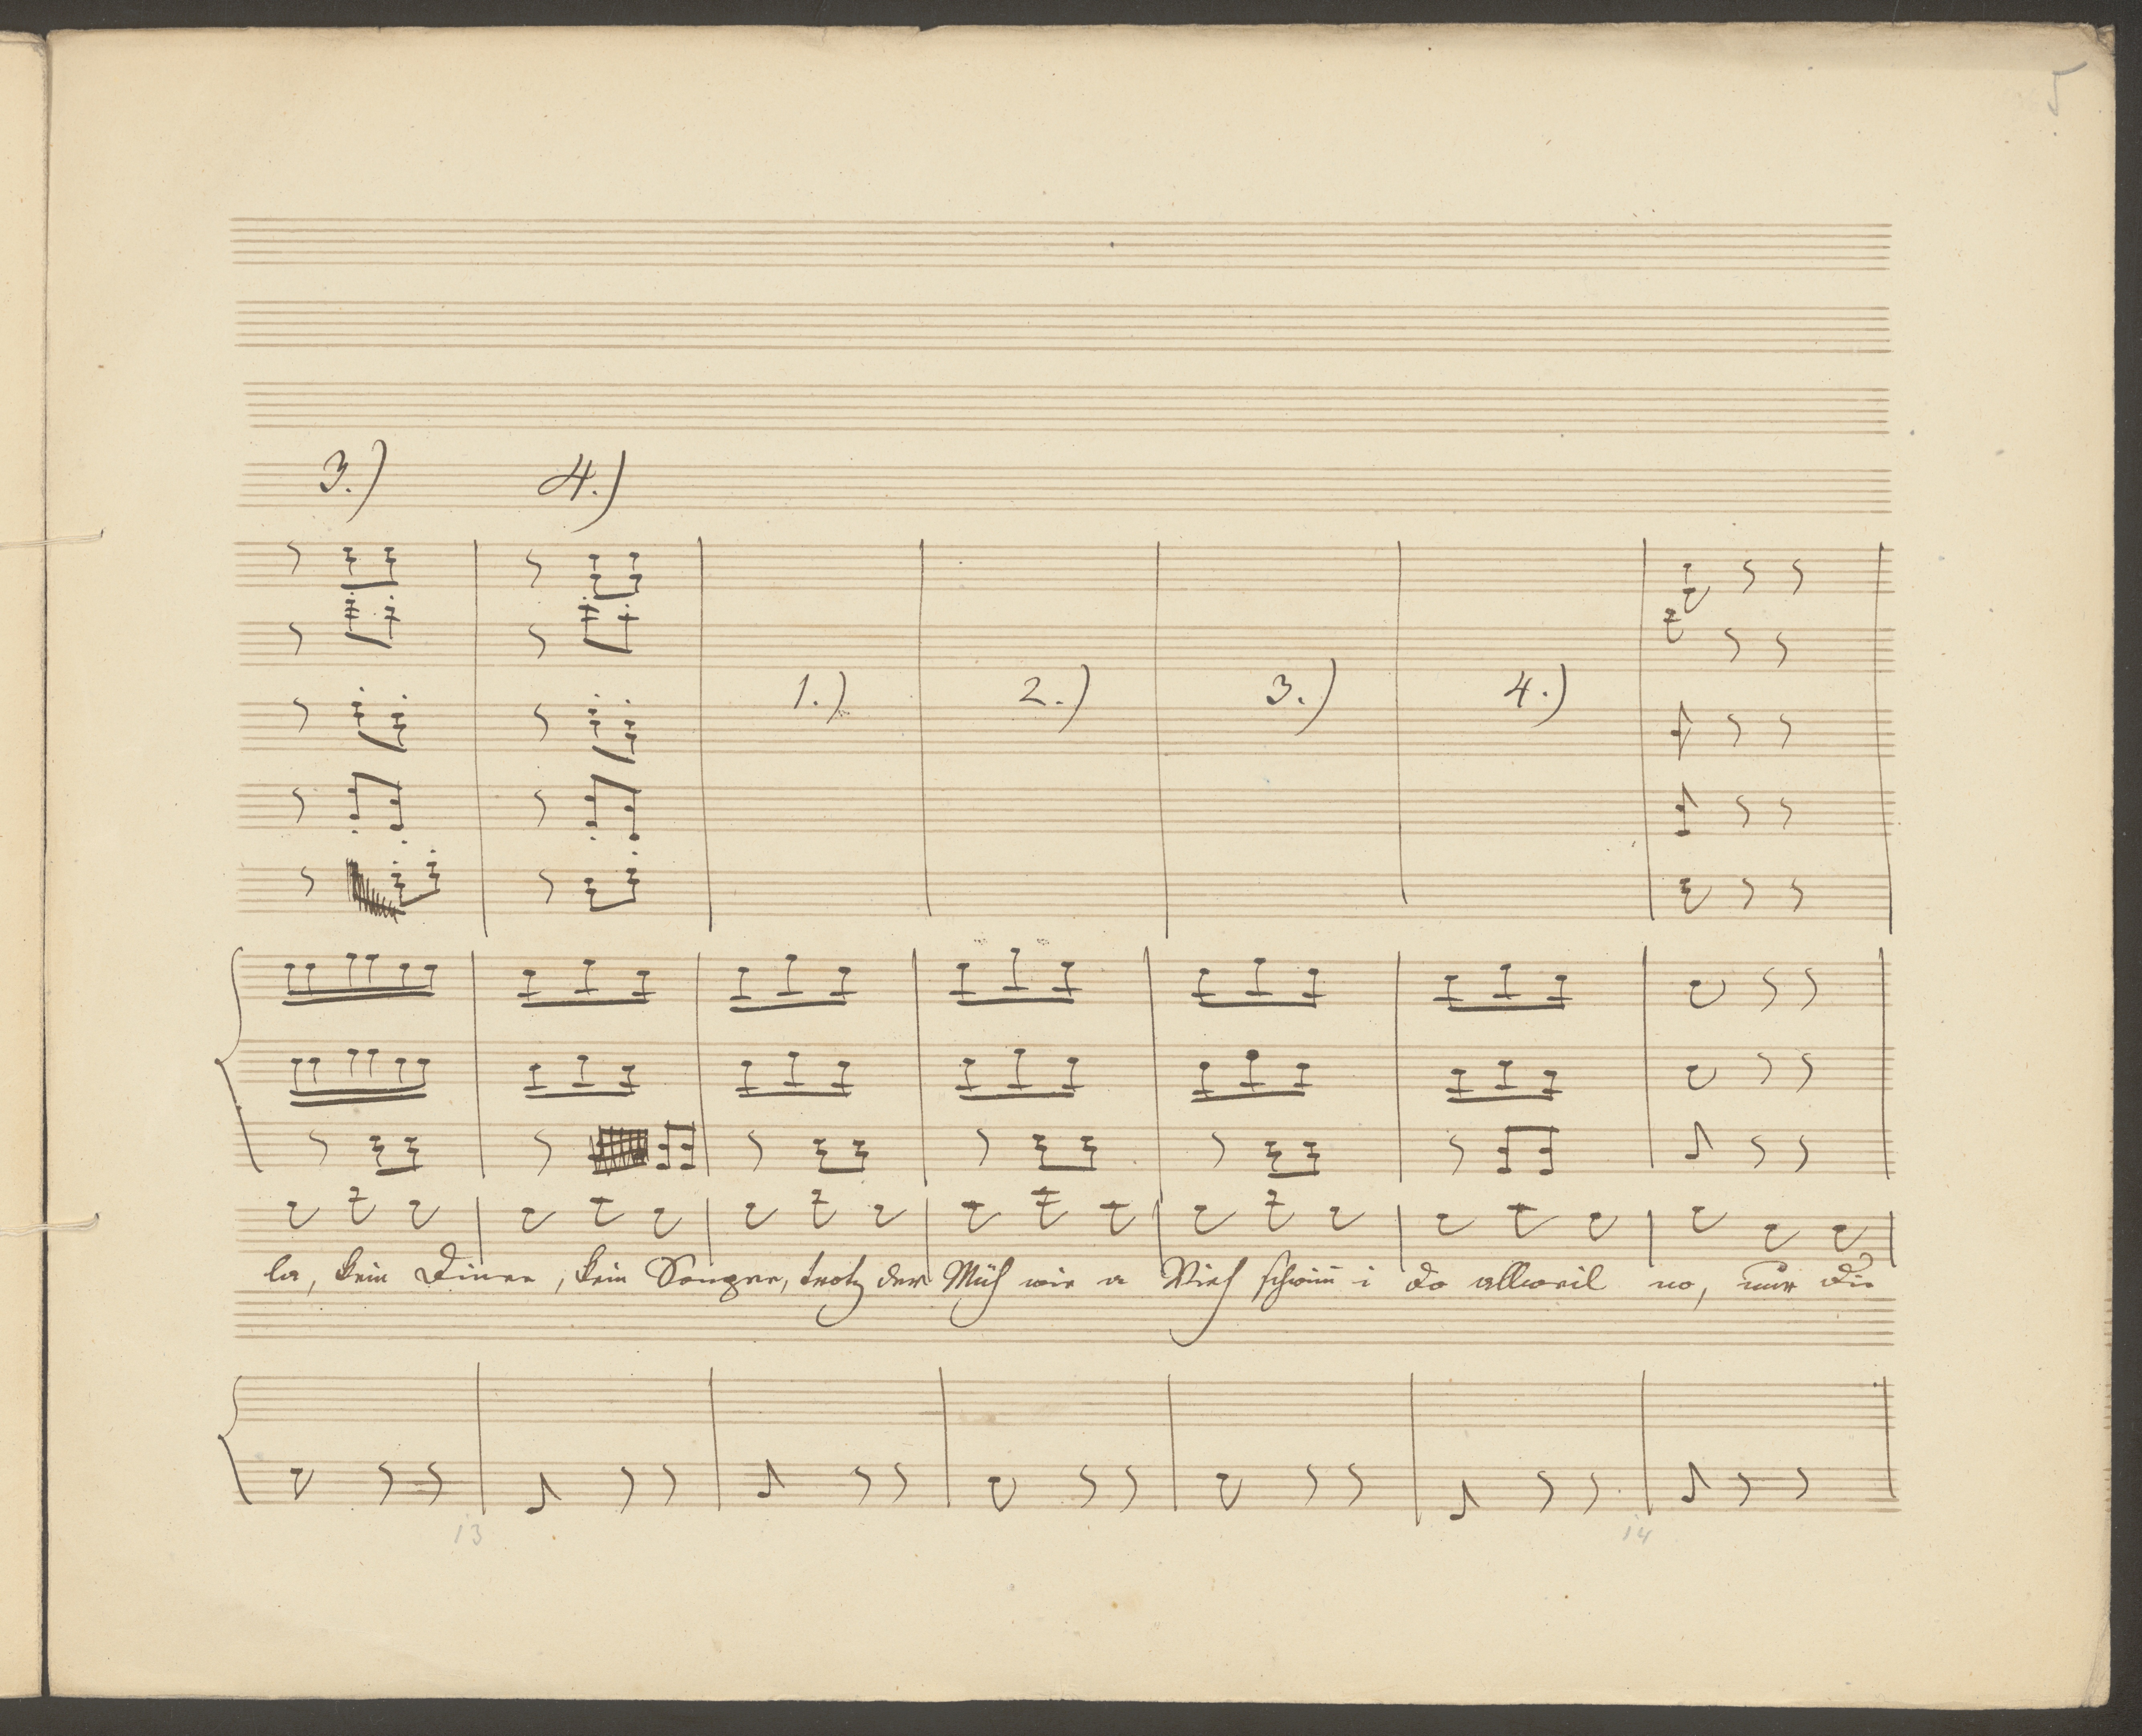 5
3.) 4.)
1.) 2.) 3.) 4.)
la, kein Diner, kein Souper, trotz der Müh wie a Vieh schwimm i do allweil no, nur die
13 14